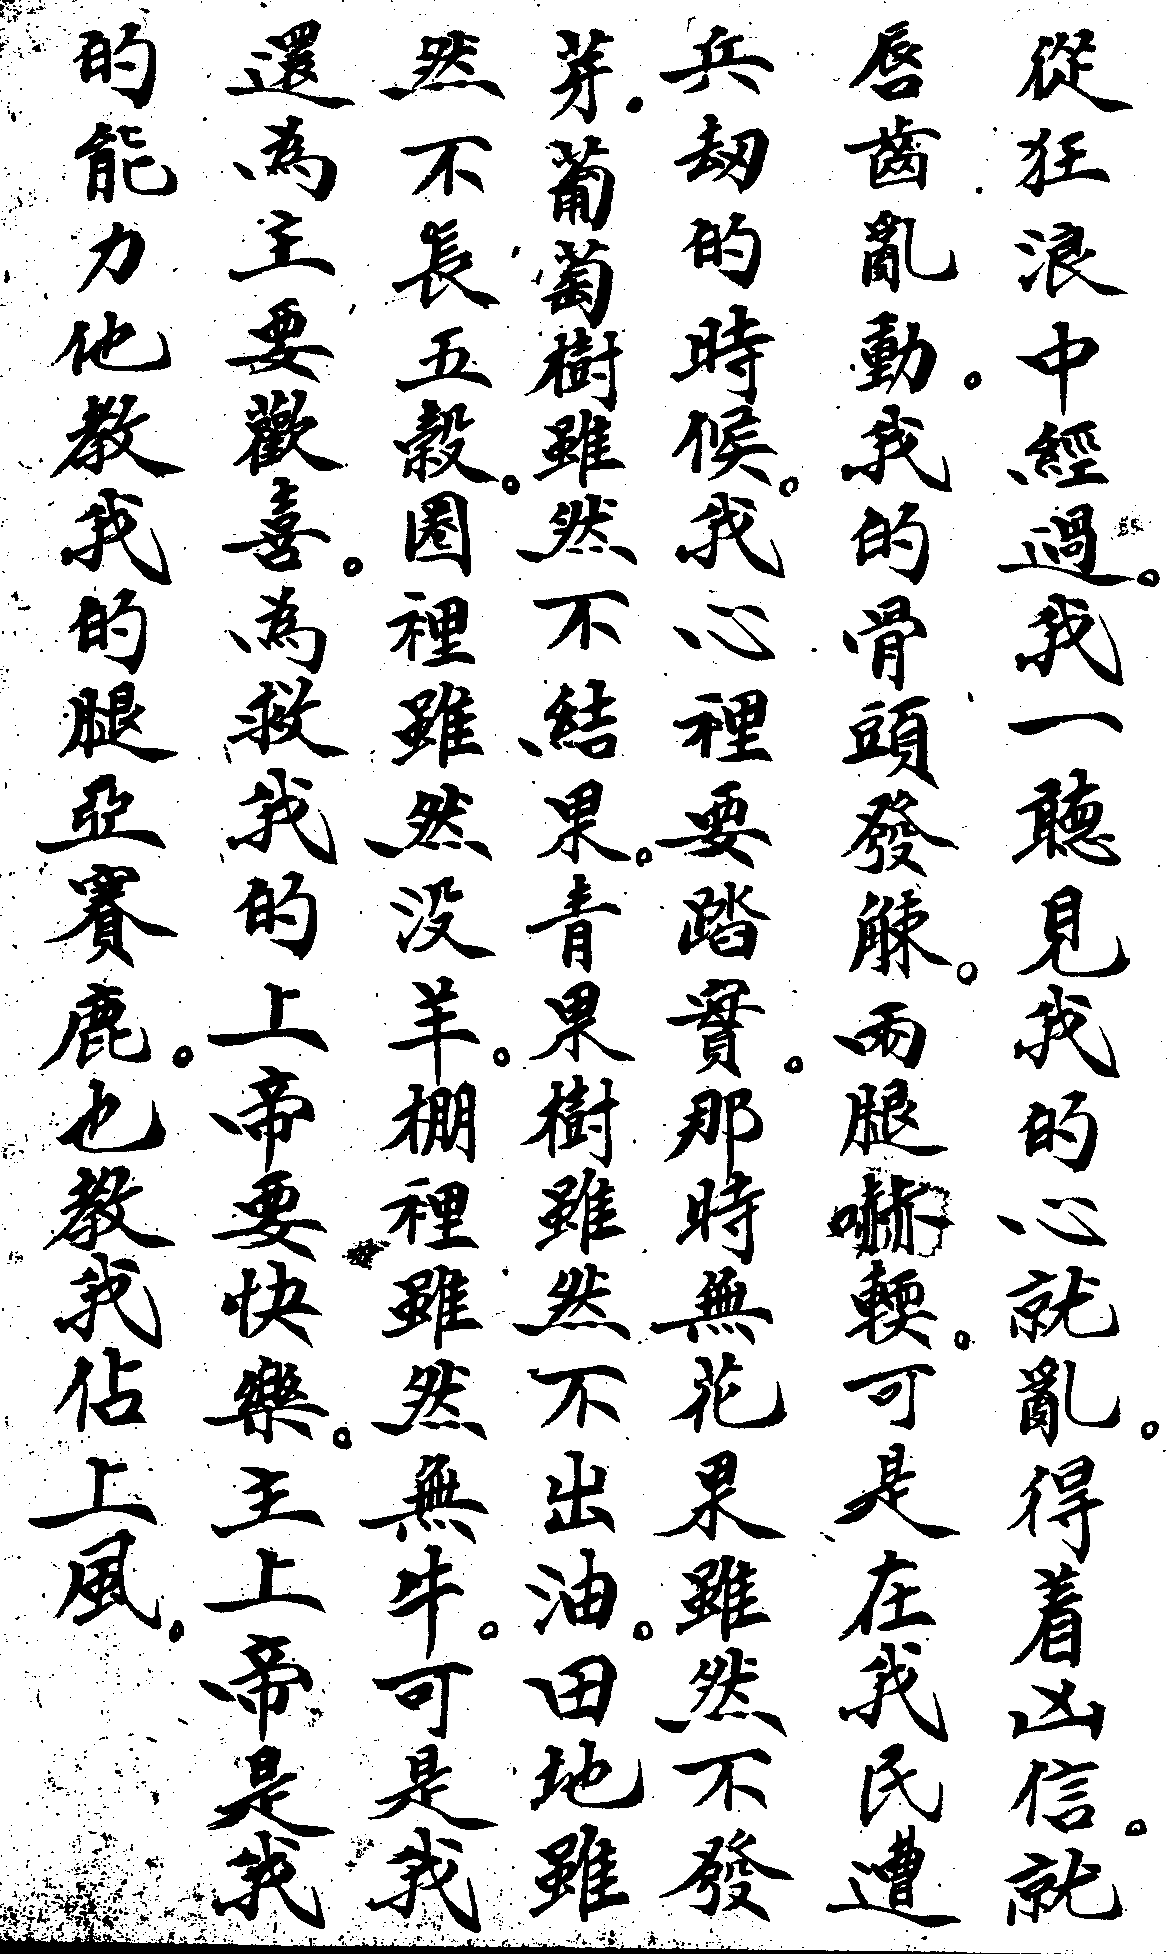 從狂浪中經過。我一聽見我的心就亂。得着凶信。就
唇齒亂動。我的骨頭發觫。兩腿嚇輭。可是在我民遭
兵刼的時候。我心裡要踏實。那時無花果雖然不發
芽。葡萄樹雖然不結果。青果樹雖然不出油。田地雖
然不長五穀。圈裡雖然没羊。棚裡雖然無牛。可是我
還為主要歡喜。為救我的上帝要快樂。主上帝是我
的能力他教我的腿亞賽鹿。也教我佔上風。